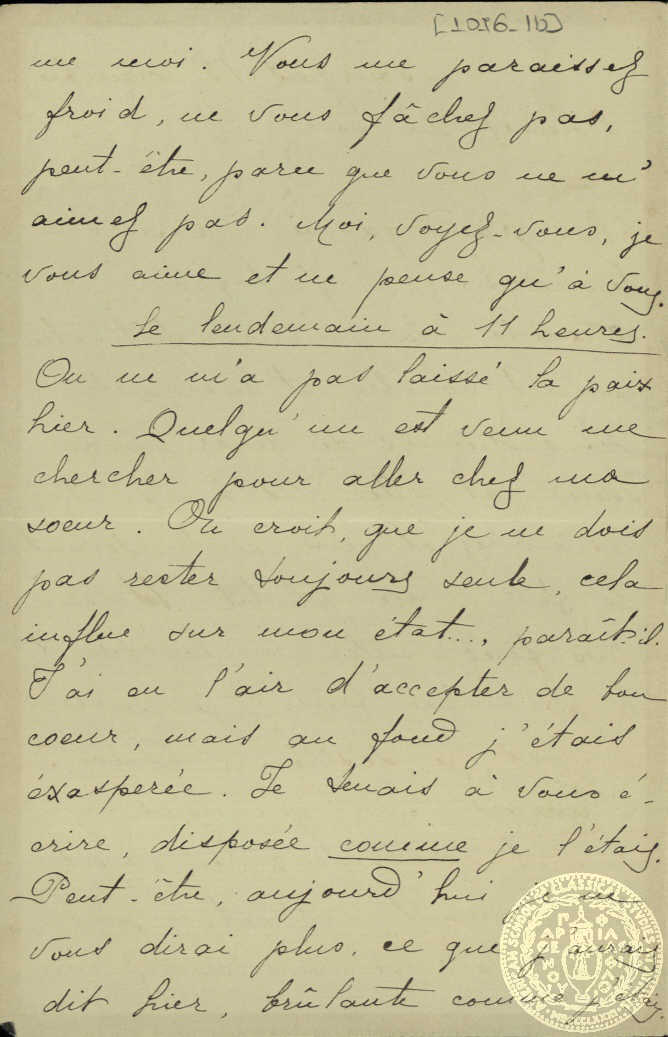 me moi. Vous me paraissez
froid, ne vous fâchez pas,
peut-être, parce que vous ne m'
aimez pas. Moi, voyez-vous, je
vous aime et ne pense qu'à vous.
Le lendemain à 11 heures.
On ne m'a pas laissé la paix
hier. Quelqu'un est venu me
chercher pour aller chez ma
soeur. On croit, que je ne dois
pas rester toujours seule, cela
influe sur mon état..., paraît-il.
J'ai eu l'air d'accepter de bon
coeur, mais au fond j'étais
éxasperée. Je tenais à vous é-
crire, disposée comme je l'étais.
Peut-être, aujourd'hui je ne
vous dirai plus, ce que j'aurais
dit hier, brûlante comme j'étais.